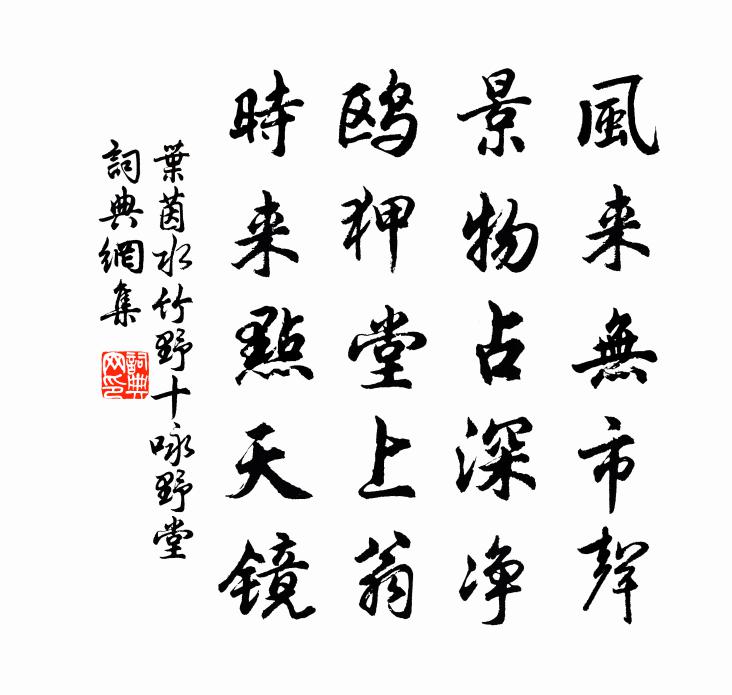 風来無市聲
景物占深净
鸥狎堂上翁
時来點天镜
葉茵水竹野十咏野堂
詞典網集
詞典网印